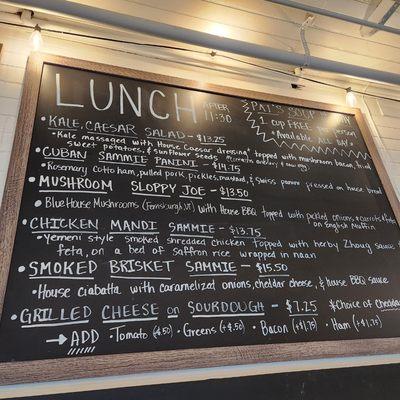 LUNCH AFTER 11:30
PAT'S SOUP
1 CUP per person
*Available ALL DAY*
• KALE CAESAR SALAD - $13.25
• Kale massaged with House Caesar dressing topped with mushroom bacon, fried
sweet potatoes, & sunflower seeds
• CUBAN SAMMIE PANINI - $14.75
Rosemary Cotto ham, pulled pork, pickles, mustard, & swiss panini pressed on house bread
• MUSHROOM SLOPPY JOE - $13.50
• Blue House Mushrooms (Ferrisburgh, VT) with House BBQ topped with pickled onions & carrots
on English muffin
• CHICKEN MANDI SAMMIE - $13.75
- Yemeni style smoked shredded chicken topped with herby Zhoug sauce
feta, on a bed of saffron rice wrapped in naan
• SMOKED BRISKET SAMMIE - $15.50
• House ciabatta with caramelized onions, cheddar cheese, & house BBQ sauce
• GRILLED CHEESE on SOURDOUGH - $7.25 *Choice of Cheddar
→ ADD • Tomato (.50) • Greens (+.50) • Bacon (+$1) • Ham (+$1.75)